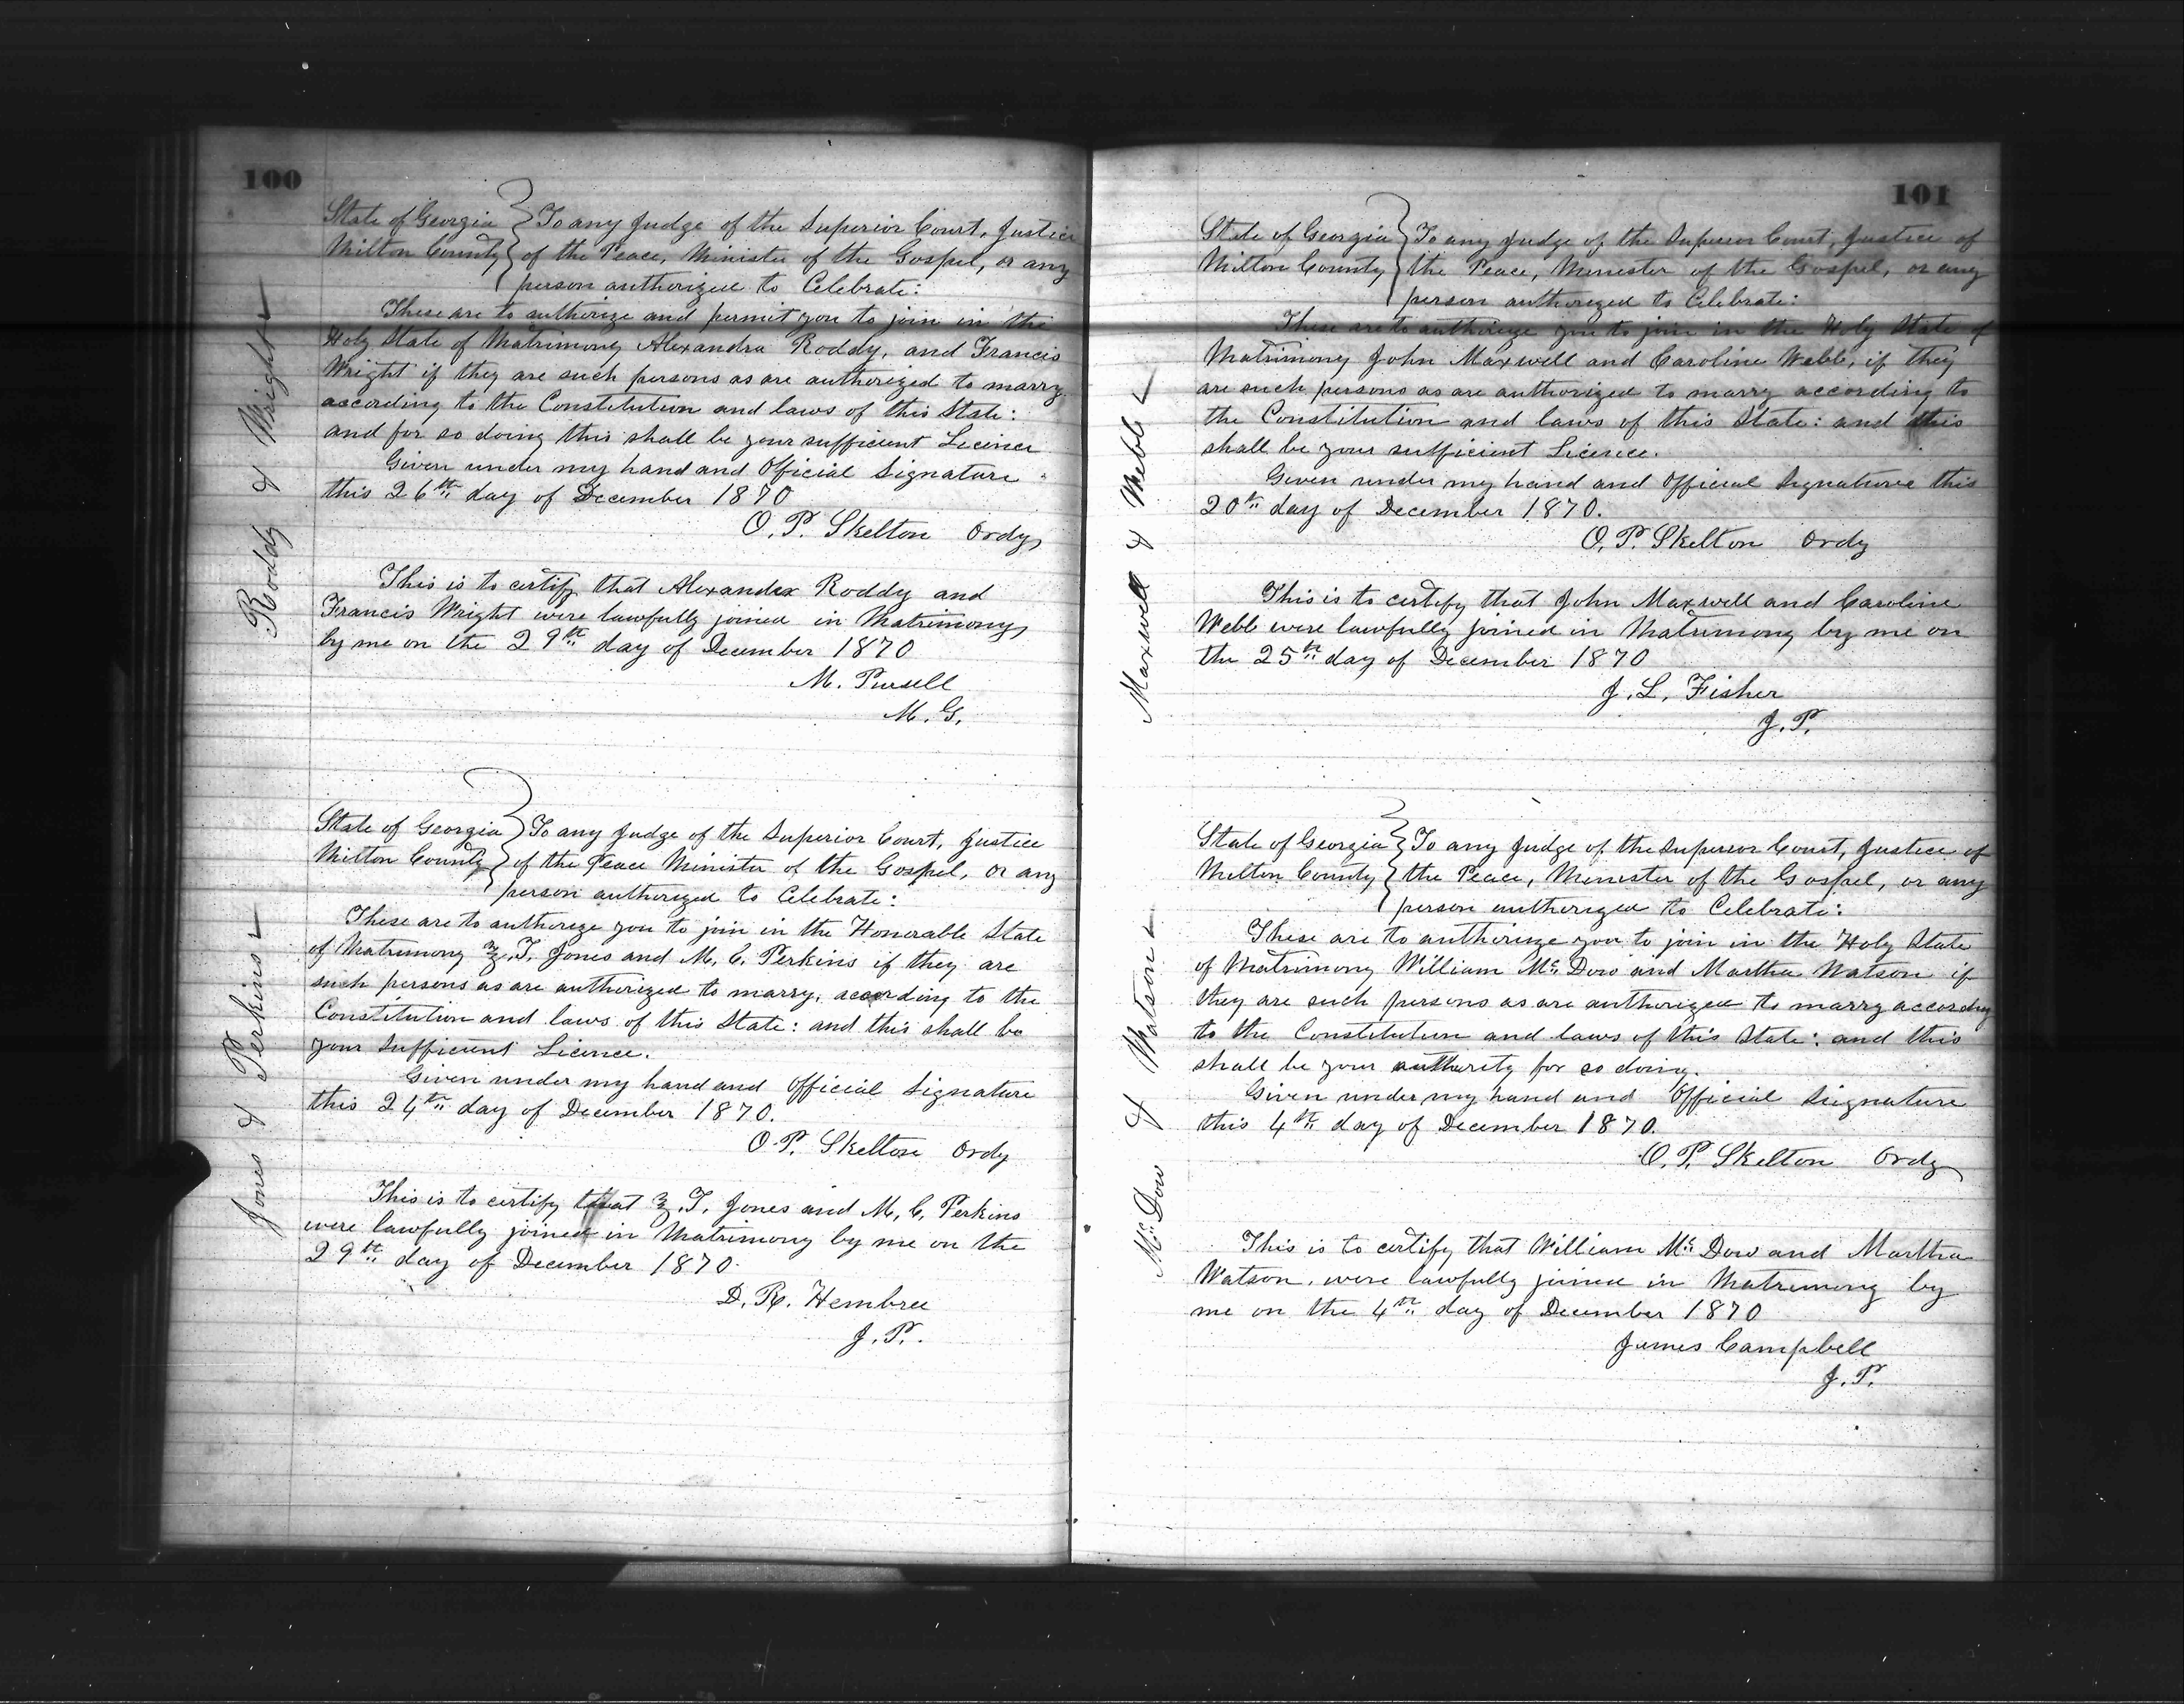 100
Roddy & Wright
State of Georgia } To any Judge of the Superior Court, Justice
Milton County } of the Peace, Minister of the Gospel, or any
person authorized to Celebrate:
These are to authorize and permit you to join in the
Holy State of Matrimony Alexandra Roddy, and Francis
Wright if they are such persons as are authorized to marry
according to the Constitution and laws of this State:
and for so doing this shall be your sufficient Licence
Given under my hand and Official Signature
this 26th day of December 1870
O. P. Skelton Ordy
This is to certify that Alexander Roddy and
Francis Wright were lawfully joined in Matrimony
by me on the 29th day of December 1870
M. Pursell
M. G.
Jones & Perkins
State of Georgia } To any Judge of the Superior Court, Justice
Milton County } of the Peace Minister of the Gospel, or any
person authorized to Celebrate:
These are to authorize you to join in the Honorable State
of Matrimony Z. T. Jones and M. C. Perkins if they are
such persons as are authorized to marry, according to the
Constitution and laws of this State: and this shall be
your Sufficient Licence.
Given under my hand and Official Signature
this 24th day of December 1870.
O. P. Skelton Ordy
This is to certify that Z. T. Jones and M. C. Perkins
were lawfully joined in Matrimony by me on the
29th day of December 1870.
D. R. Hembree
J. P.
101
Maxwell & Webb
State of Georgia } To any Judge of the Superior Court, Justice of
Milton County } the Peace, Minister of the Gospel, or any
person authorized to Celebrate:
These are to authorize you to join in the Holy State of
Matrimony John Maxwell and Caroline Webb, if they
are such persons as are authorized to marry according to
the Constitution and laws of this State: and this
shall be your sufficient Licence.
Given under my hand and Official Signature this
20th day of December 1870.
O. P. Skelton Ordy
This is to certify that John Maxwell and Caroline
Webb were lawfully joined in Matrimony by me on
the 25th day of December 1870
J. L. Fisher
J. P.
McDow & Watson
State of Georgia } To any Judge of the Superior Court, Justice of
Milton County } the Peace, Minister of the Gospel, or any
person authorized to Celebrate:
These are to authorize you to join in the Holy State
of Matrimony William McDow and Martha Watson if
they are such persons as are authorized to marry accordng
to the Constitution and laws of this State: and this
shall be your authority for so doing.
Given under my hand and Official Signature
this 4th day of December 1870.
O. P. Skelton Ordy
This is to certify that William McDow and Martha
Watson, were lawfully joined in Matrimony by
me on the 4th day of December 1870
James Campbell
J. P.